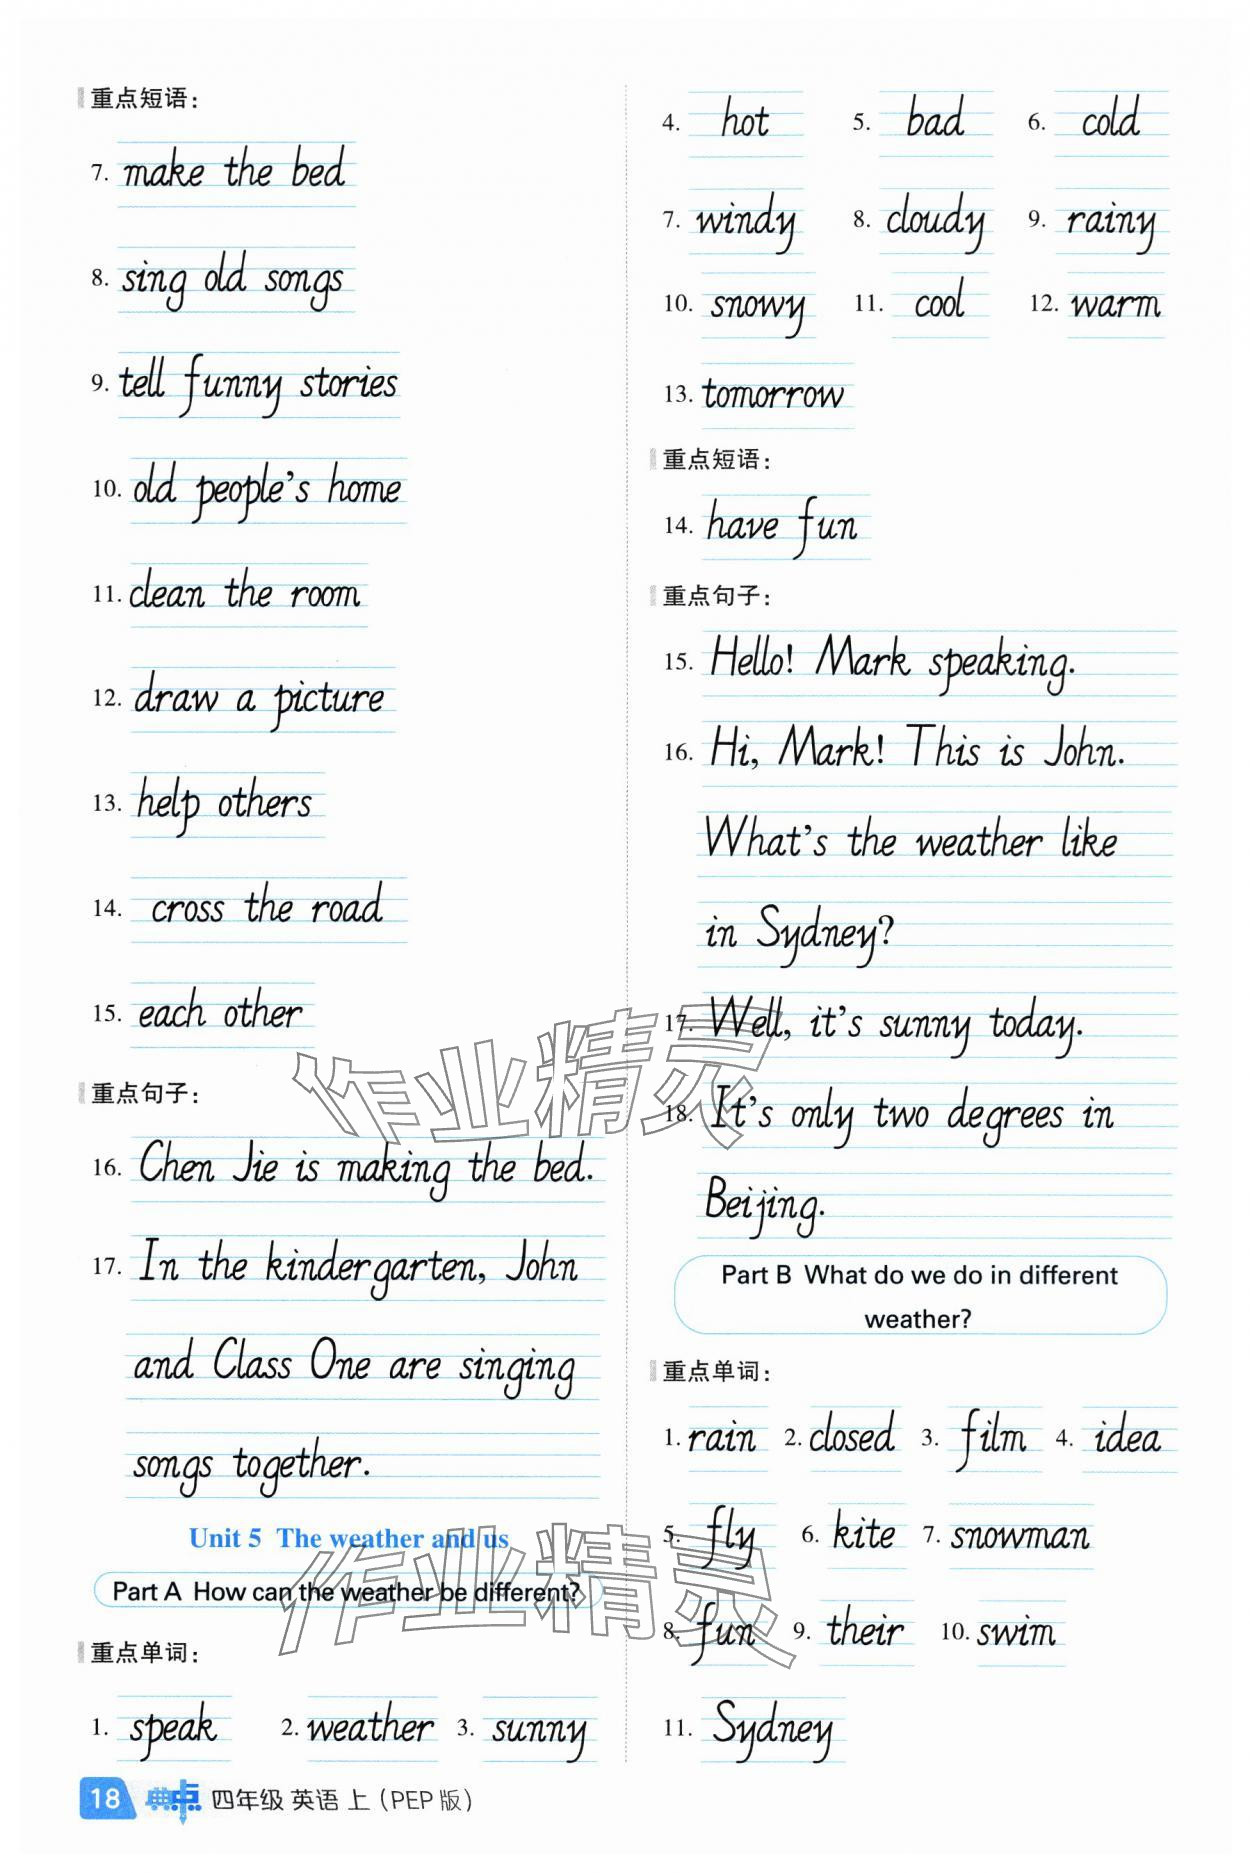 重点短语：
7. make the bed
8. sing old songs
9. tell funny stories
10. old people's home
11. clean the room
12. draw a picture
13. help others
14. cross the road
15. each other
重点句子：
16. Chen Jie is making the bed.
17. In the kindergarten, John
and Class One are singing
songs together.
Unit 5 The weather and us
Part A How can the weather be different?
重点单词：
1. speak 2. weather 3. sunny
4. hot 5. bad 6. cold
7. windy 8. cloudy 9. rainy
10. snowy 11. cool 12. warm
13. tomorrow
重点短语：
14. have fun
重点句子：
15. Hello! Mark speaking.
16. Hi, Mark! This is John.
What's the weather like
in Sydney?
17. Well, it's sunny today.
18. It's only two degrees in
Beijing.
Part B What do we do in different
weather?
重点单词：
1. rain 2. closed 3. film 4. idea
5. fly 6. kite 7. snowman
8. fun 9. their 10. swim
11. Sydney
作业精灵
作业精灵
18 典点 四年级 英语 上（PEP 版）